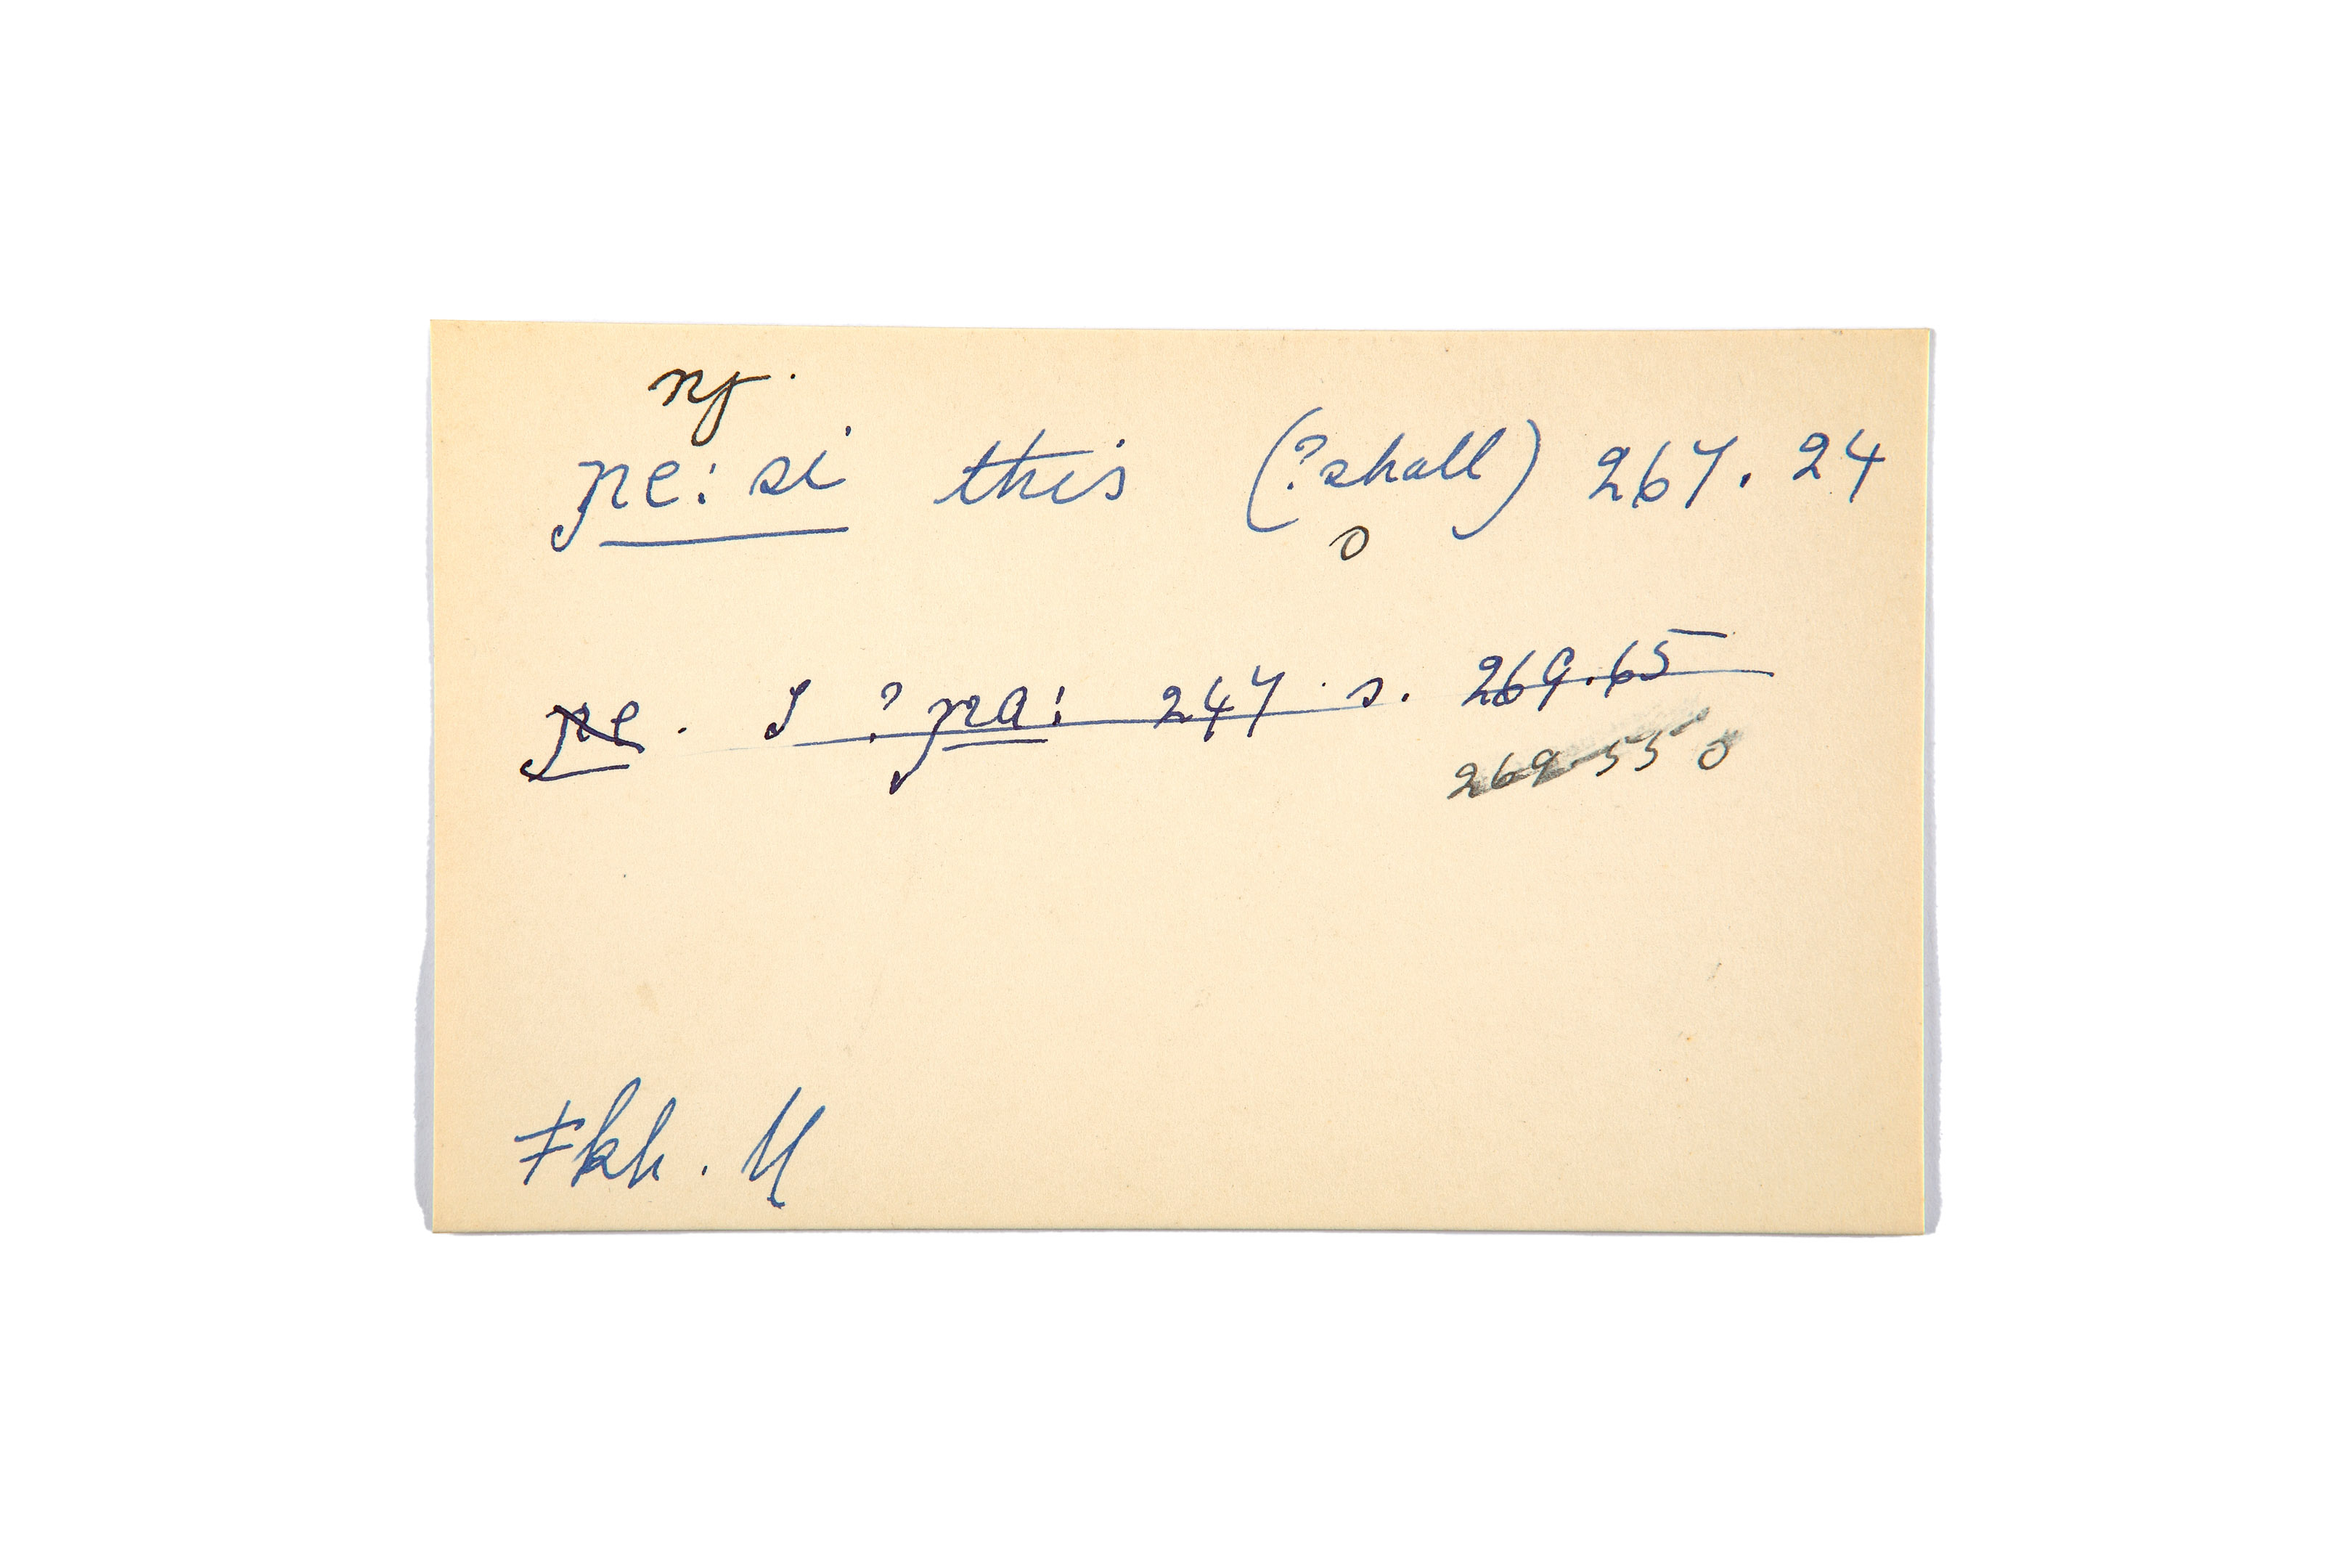 nf.
ɲe: si this (?shall) 267. 24
o
ɲe. I ? ɲa: 247 s. 269.65
269.55 o
Fkh. M